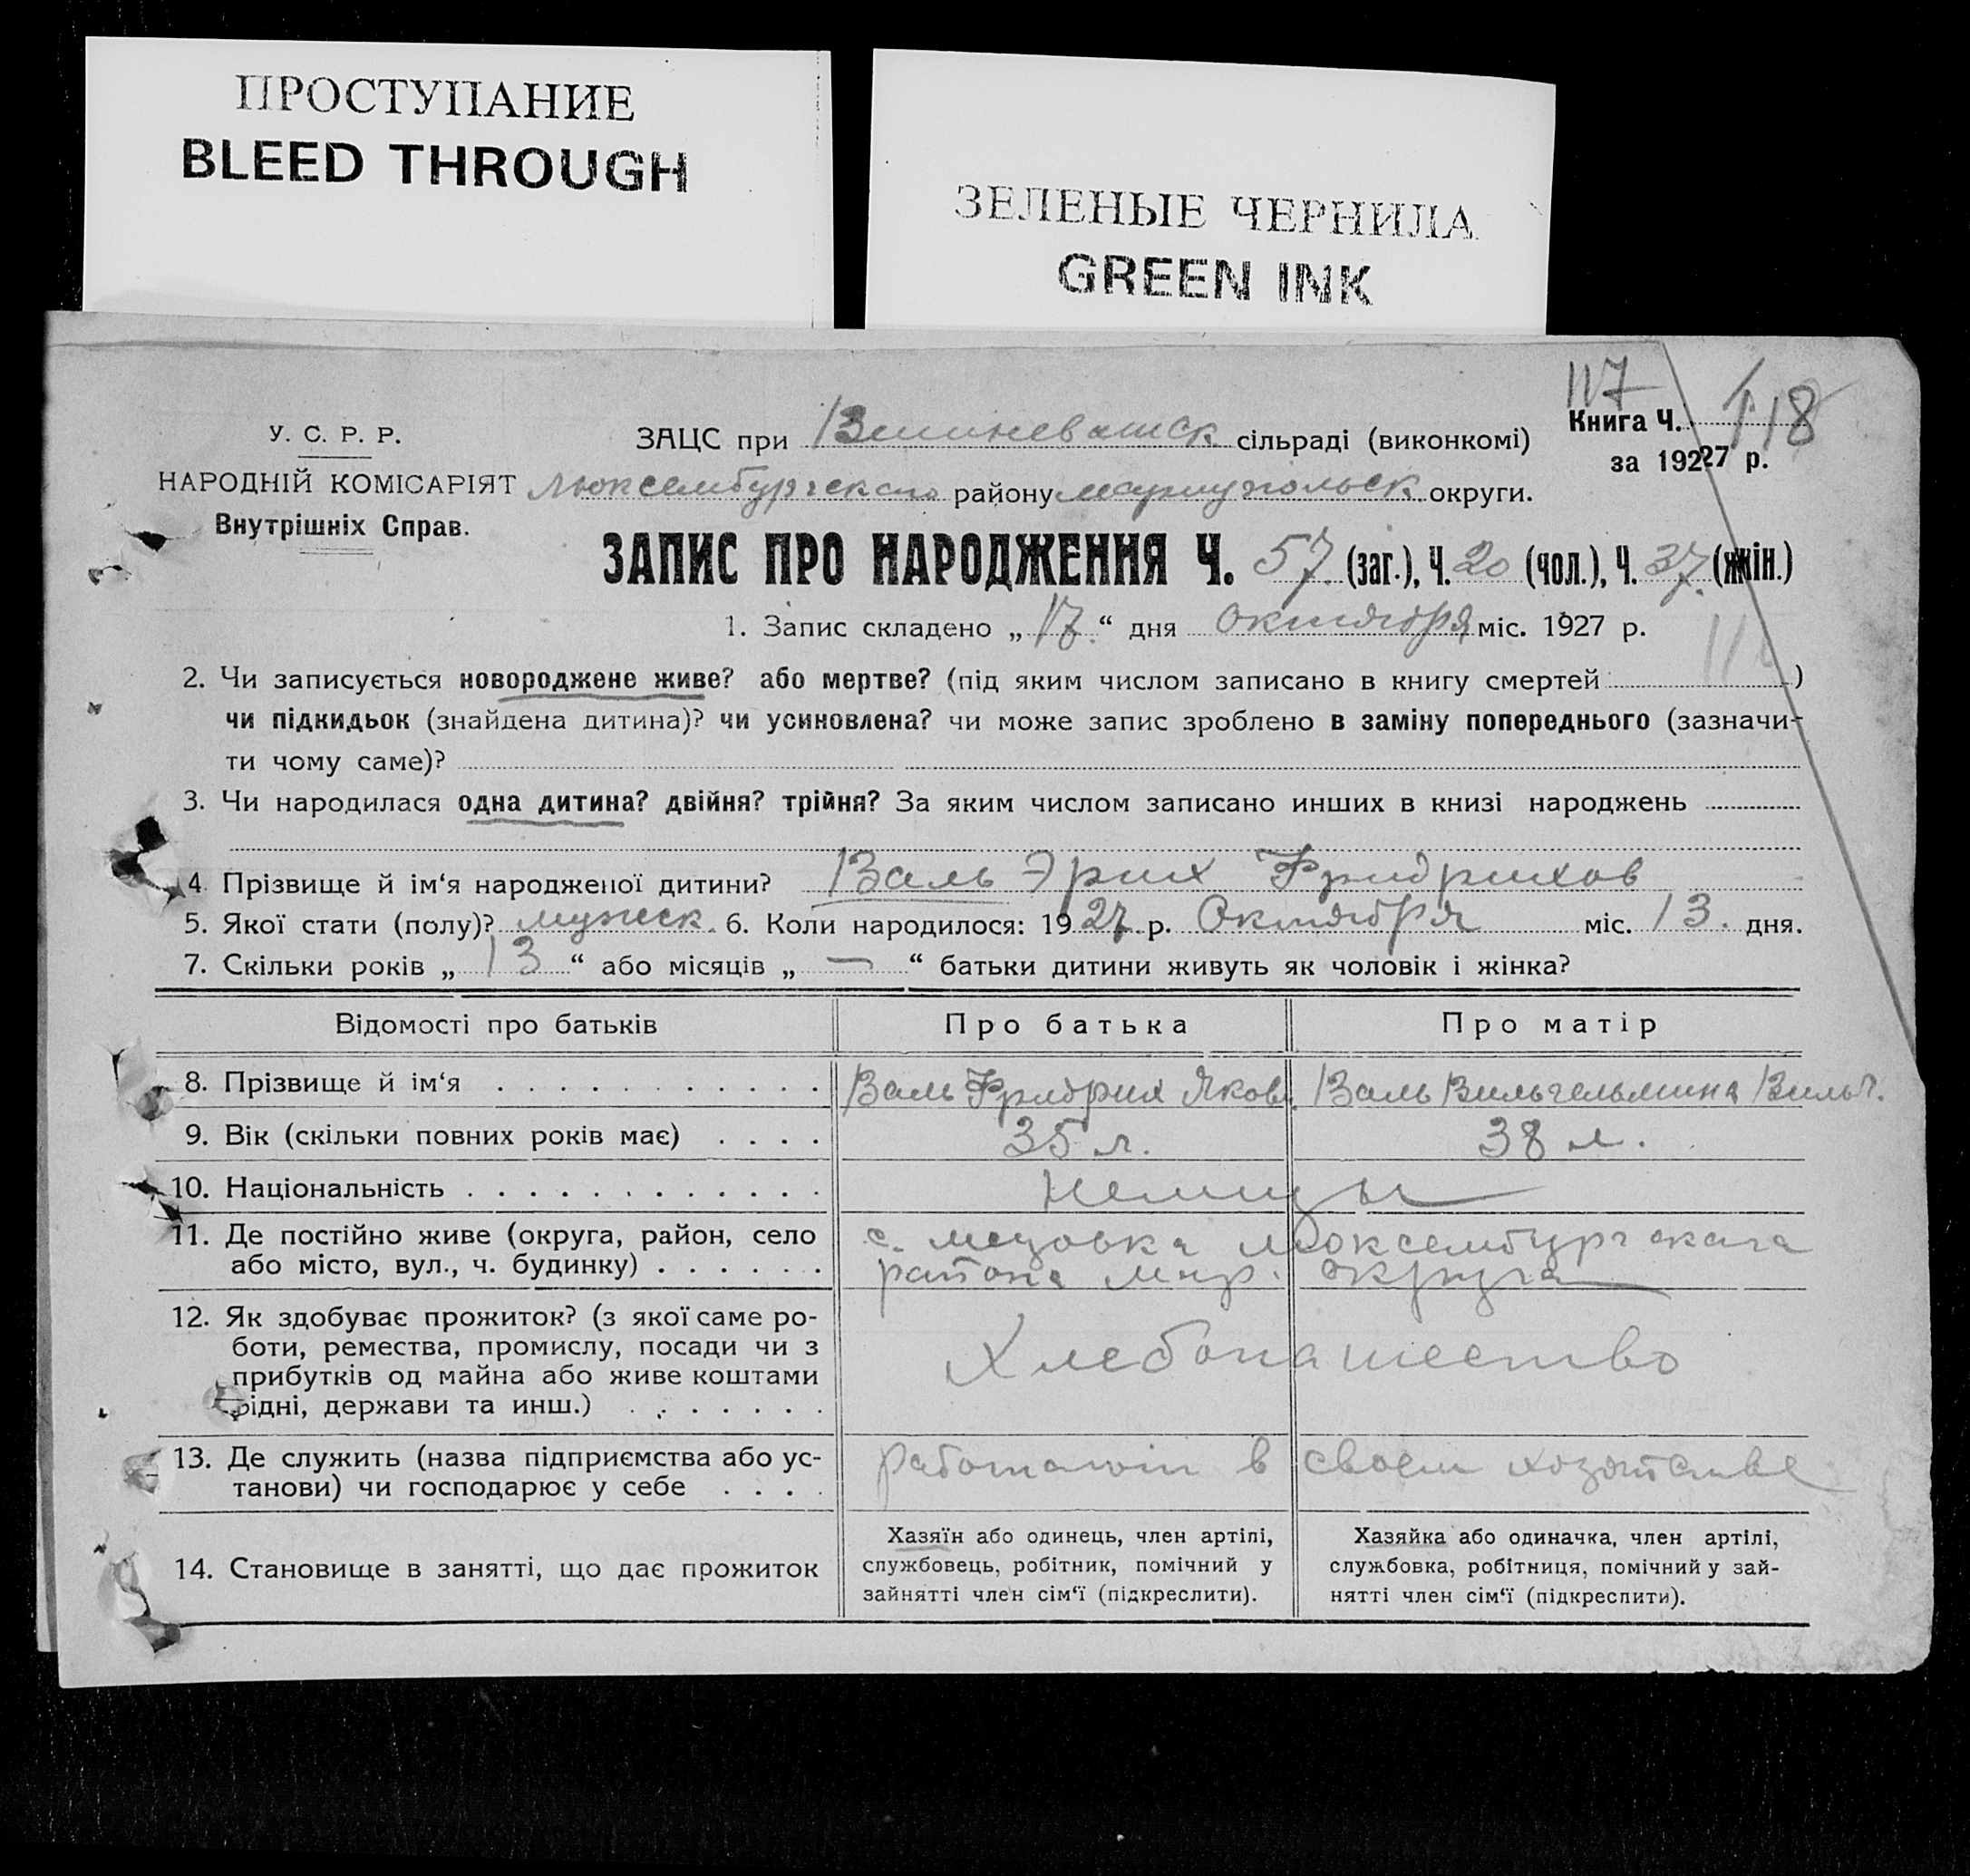 ПРОСТУПАНИЕ
BLEED THROUGH
ЗЕЛЕНЫЕ ЧЕРНИЛА
GREEN INK
117
Книга Ч. 118
за 1927 р.
У. С. Р. Р.
НАРОДНІЙ КОМІСАРІЯТ
Внутрішніх Справ.
ЗАЦС при сільраді (виконкомі)
Люксембургскаго району Мариупольск округи.
ЗАПИС ПРО НАРОДЖЕННЯ Ч. 57. (заг.), Ч. 20 (чол.), Ч. 37. (жін.)
1. Запис складено „ 17. “ дня Октября міс. 1927 р.
2. Чи записується новороджене живе? або мертве? (під яким числом записано в книгу смертей )
чи підкидьок (знайдена дитина)? чи усиновлена? чи може запис зроблено в заміну попереднього (зазначи-
ти чому саме)?
3. Чи народилася одна дитина? двійня? трійня? За яким числом записано инших в книзі народжень
4. Прізвище й ім‘я народженої дитини? Валь Эрих Фридрихов
5. Якої стати (полу)? мужеск. 6. Коли народилося: 1927 р. Октября міс. 13. дня.
7. Скільки років „ 13 “ або місяців „ — “ батьки дитини живуть як чоловік і жінка?
Відомості про батьків Про батька Про матір
8. Прізвище й ім‘я . . . . . . . . . . . Валь Фридрих Яковл. Валь Вильгельмина Вильг.
9. Вік (скільки повних років має) . . . . 35 л. 38 л.
10. Національність . . . . . . . . . . . . немцы
11. Де постійно живе (округа, район, село
або місто, вул., ч. будинку) . . . . . .
с. Люксембургскаго
района Мар. округа
12. Як здобуває прожиток? (з якої саме ро-
боти, ремества, промислу, посади чи з
прибутків од майна або живе коштами
рідні, держави та инш.) . . . . . . .
Хлебопашество
13. Де служить (назва підприємства або ус-
танови) чи господарює у себе . . . .
работают в своем хозяйстве
14. Становище в занятті, що дає прожиток
Хазяїн або одинець, член артілі,
службовець, робітник, помічний у
зайнятті член сім‘ї (підкреслити).
Хазяйка або одиначка, член артілі,
службовка, робітниця, помічний у зай-
нятті член сім‘ї (підкреслити).